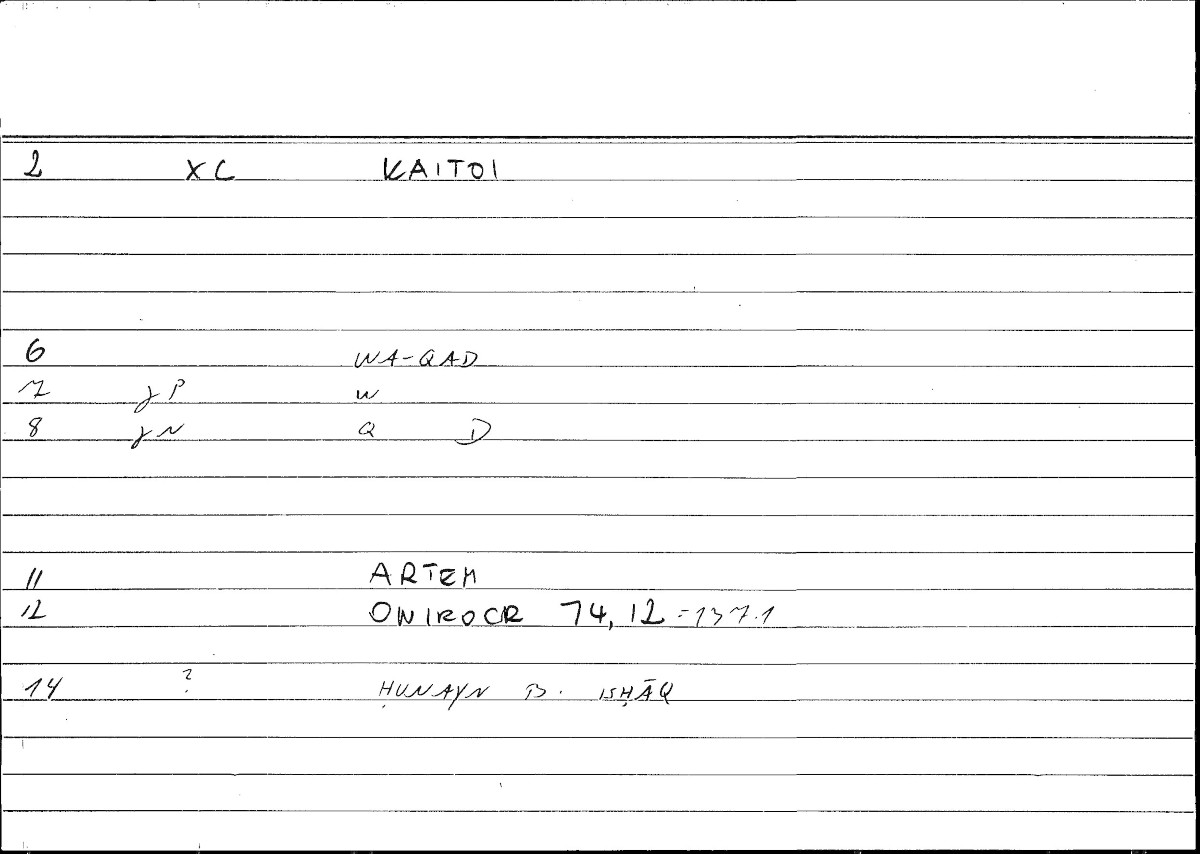 2 XC KAITOI
6 WA-QAD
7 γP W
8 γN Q D
11 ARTEM
12 ONIROCR 74, 12 = 137.1
14 ? ḤUNAYN B. ISḤĀQ